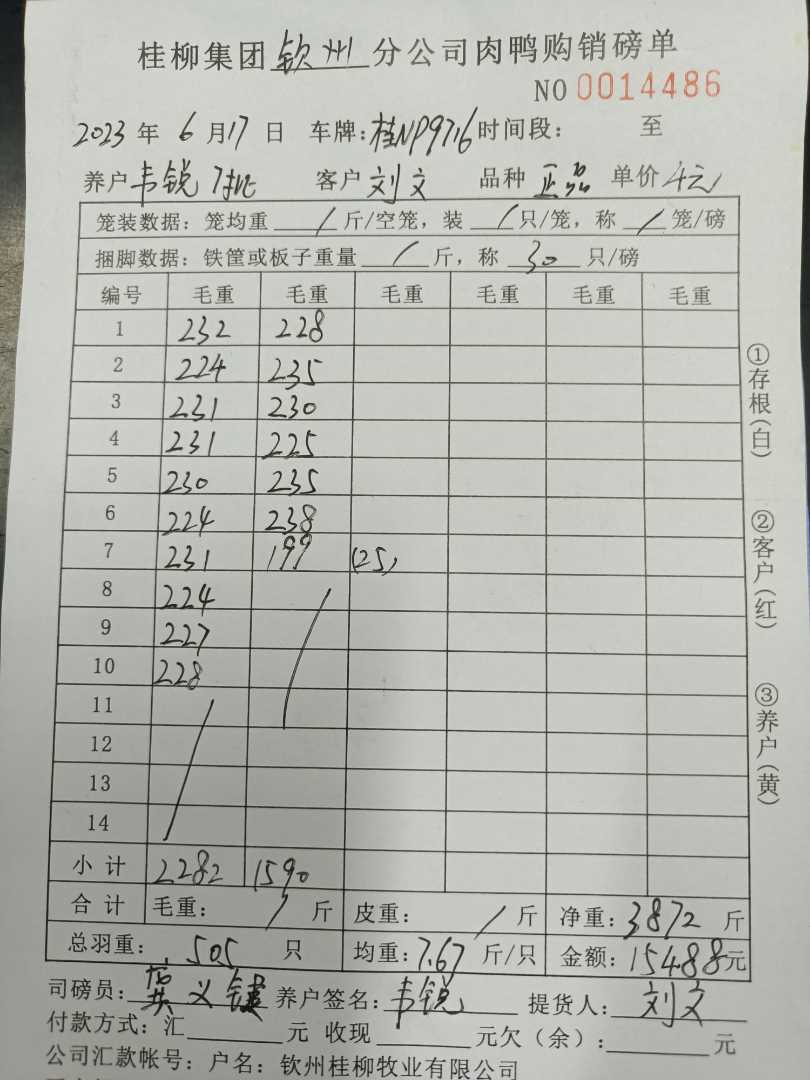 桂柳集团 钦州 分公司肉鸭购销磅单
NO 0014486
2023 年 6 月 17 日 车牌：桂NP9716 时间段： 至
养户 韦锐 客户 刘文 品种 正品 单价 4元
笼装数据：笼均重 / 斤/空笼，装 / 只/笼，称 / 笼/磅
捆脚数据：铁筐或板子重量 / 斤，称 30 只/磅
编号 毛重 毛重 毛重 毛重 毛重 毛重
1 232 228
2 224 235
3 231 230
4 231 225
5 230 235
6 224 238
7 231 199 (25)
8 224 /
9 227
10 228
11 /
12
13
14
小计 2282 1590
合计 毛重： / 斤 皮重： / 斤 净重：3872 斤
总羽重： 505 只 均重：7.67 斤/只 金额：15488元
司磅员： 义 养户签名：韦锐 提货人：刘文
付款方式：汇 元 收现 元欠（余）： 元
公司汇款帐号：户名：钦州桂柳牧业有限公司
①存根（白）
②客户（红）
③养户（黄）